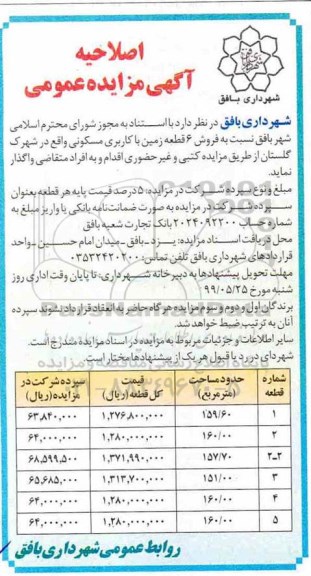 اصلاحیه
آگهی مزایده عمومی
شهرداری بافق
شهرداری بافق در نظر دارد با استناد به مجوز شورای محترم اسلامی
شهر بافق نسبت به فروش ۶ قطعه زمین با کاربری مسکونی واقع در شهرک
گلستان از طریق مزایده کتبی و غیر حضوری اقدام و به افراد متقاضی واگذار
نماید.
مبلغ و نوع سپرده شرکت در مزایده: ۵ درصد قیمت پایه هر قطعه بعنوان
سپرده شرکت در مزایده به صورت ضمانت نامه بانکی یا واریز مبلغ به
شماره حساب ۲۰۲۴۰۹۲۳۰۰ بانک تجارت شعبه بافق
محل دریافت اسناد مزایده: یزد - بافق - میدان امام حسین - واحد
قراردادهای شهرداری بافق تلفن تماس: ۰۳۵۳۲۴۲۰۲۰۰
مهلت تحویل پیشنهادها به دبیرخانه شهرداری: تا پایان وقت اداری روز
شنبه مورخ ۹۹/۰۵/۲۵
برندگان اول و دوم و سوم مزایده هرگاه حاضر به انعقاد قرارداد نشوند سپرده
آنان به ترتیب ضبط خواهد شد.
سایر اطلاعات و جزئیات مربوط به مزایده در اسناد مزایده مندرج است.
شهردای در رد یا قبول هر یک از پیشنهادها مختار است.
شماره قطعه حدود مساحت (مترمربع) قیمت کل قطعه (ریال) سپرده شرکت در مزایده (ریال)
۱ ۱۵۹/۶۰ ۱,۲۷۶,۸۰۰,۰۰۰ ۶۳,۸۴۰,۰۰۰
۲ ۱۶۰/۰۰ ۱,۲۸۰,۰۰۰,۰۰۰ ۶۴,۰۰۰,۰۰۰
۲-۲ ۱۵۷/۷۰ ۱,۳۷۱,۹۹۰,۰۰۰ ۶۸,۵۹۹,۵۰۰
۳ ۱۵۱/۰۰ ۱,۳۱۳,۷۰۰,۰۰۰ ۶۵,۶۸۵,۰۰۰
۴ ۱۶۰/۰۰ ۱,۲۸۰,۰۰۰,۰۰۰ ۶۴,۰۰۰,۰۰۰
۵ ۱۶۰/۰۰ ۱,۲۸۰,۰۰۰,۰۰۰ ۶۴,۰۰۰,۰۰۰
روابط عمومی شهرداری بافق